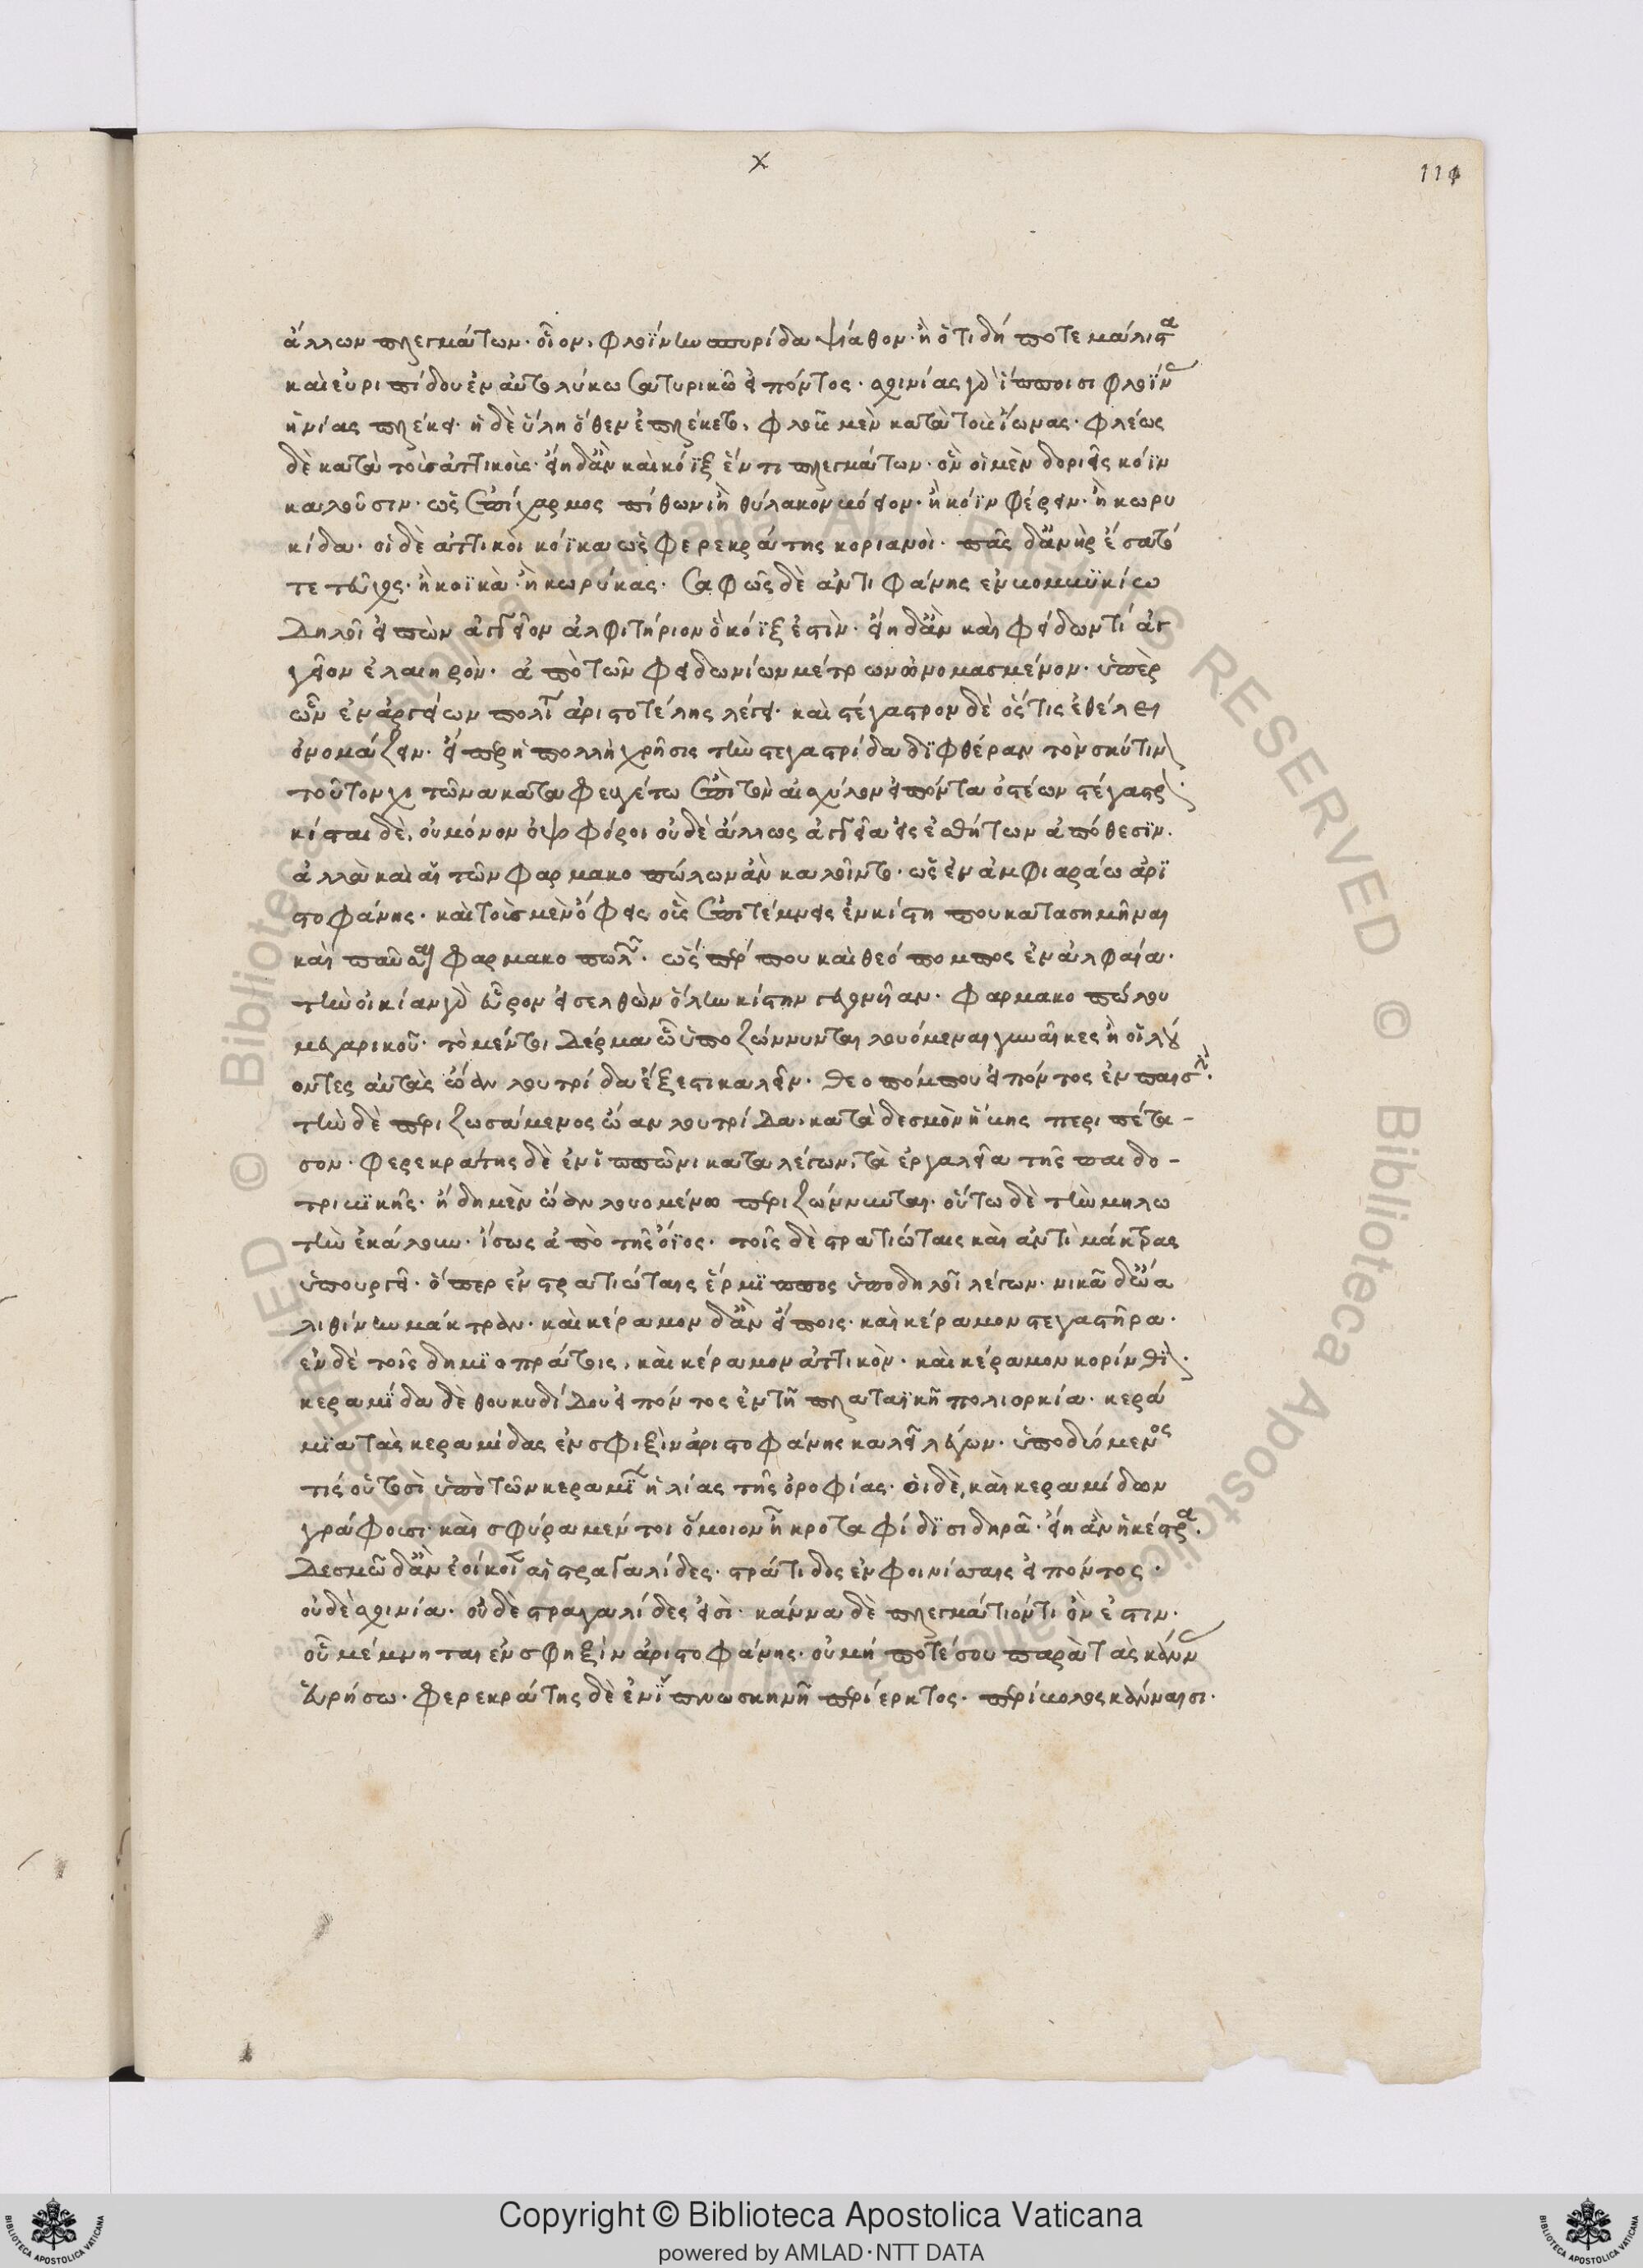 x
114
ἄλλων πλεγμάτων. οἷον, φλοΐνην σπυρίδα ψίαθον. ἢ ὅτι δή ποτε μάλιστα
καὶ εὐριπίδου ἐν αὐτολύκω σατυρικῶ εἰπόντος. σχινίας γὰρ ἵπποισι φλοΐνας
ἡνίας πλέκει. ἡ δὲ ὕλη ὅθεν ἐπλέκετο, φλοῦς μὲν κατὰ τοὺς ἴωνας. φλέως
δὲ κατὰ τοὺς ἀττικοὺς. εἴη δἂν καὶ κόϊξ ἕν τι πλεγμάτων. ὃν οἱ μὲν δοριεῖς κόϊν
καλοῦσιν. ὡς ἐπίχαρμος πίθωνι ἢ θύλακον βόειον. ἢ κόϊν φέρειν. ἢ κωρυ
κίδα. οἱ δὲ ἀττικοὶ κόϊκα ὡς φερεκράτης κοριανοῖ. πᾶς δἀνὴρ ἔσαττε
τε τεῦχος. ἢ κοϊκὰ ἢ κωρύκας. σαφῶς δὲ ἀντιφάνης ἐν βομβυκίω
δηλοῖ εἰπὼν ἀγγεῖον ἀλφιτήριον ὁ κόϊξ ἐστὶν. εἴη δἂν καὶ φείδων τί ἀγ
γεῖον ἐλαιηρὸν. ἀπὸ τῶν φειδωνίων μέτρων ὠνομασμένον. ὑπὲρ
ὧν ἐν ἀργείων πολιτεία ἀριστοτέλης λέγει. καὶ στέγαστρον δέ ὅςτις ἐθέλει
ὀνομάζειν. εἴπερ ἡ πολλὴ χρῆσις τὴν στεγαστρίδα διφθέραν τὸν σκύτινον
τοῦτον χιτῶνα καταφευγέτω ἐπὶ τὸν αἰσχύλον εἰπόντα ὀστέων στέγαστρον.
κίσται δὲ, οὐ μόνον ὀψοφόροι οὐδὲ ἄλλως ἀγγεῖα εἰς ἐσθήτων ἀπόθεσιν.
ἀλλὰ καὶ αἱ τῶν φαρμακοπώλων ἂν καλοῖντο. ὡς ἐν ἀμφιαράω ἀρι
στοφάνης. καὶ τοὺς μὲν ὄφεις οὓς ἐπιτέμπεις ἐν κίστη που κατασημῆναι
καὶ παῦσαι φαρμακοπωλῶν. ὥς περ που καὶ θεόπομπος ἐν ἀλφαία.
τὴν οἰκίαν γὰρ εὗρον εἰσελθὼν ὅλην κίστην γεγονυῖαν. φαρμακοπώλου
μεγαρικοῦ. τὸ μέντοι δέρμα ᾧ ὑποζώννυνται λουόμεναι γυναῖκες ἢ οἱ λού
οντες αὐτὰς ὤαν λουτρίδα ἔξεστι καλεῖν. θεοπόμπου εἰπόντος ἐν παισὶν.
τὴν δὲ περιζωσάμενος ὤαν λουτρίδα. κατὰ δεσμὸν ἥβης περιπέτα-
σον. φερεκράτης δὲ ἐν ἱππῶνι καταλέγων, τὰ ἐργαλεῖα τῆς παιδο-
τριβικῆς. ἤδη μὲν ὤαν λουομένω περιζώννυται. οὕτω δὲ τὴν μηλω
τὴν ἐκάλουν. ἴσως ἀπὸ τῆς ὄϊος. τοῖς δὲ στρατιώταις καὶ ἀντὶ μάκτρας
ὑπουργεῖ. ὅπερ ἐν στρατιώταις ἕρμιππος ὑποδηλοῖ λέγων. νικᾶ δὤα
λιθίνην μάκτραν. καὶ κέραμον δἂν εἴποις. καὶ κέραμον στεγαστῆρα.
ἐν δὲ τοῖς δημιοπράτοις, καὶ κέραμον ἀττικὸν. καὶ κέραμον κορίνθιον.
κεραμίδα δὲ θουκυδίδου εἰπόντος ἐν τῆ πλαταιϊκῆ πολιορκία. κερά
μια τὰς κεραμίδας ἐν σφιξὶν ἀριστοφάνης καλεῖ λέγων. ὑποδυόμενος
τίς οὑτοσὶ ὑπὸ τῶν κεραμίων ἡλίας τῆς ὀροφίας. οἱ δὲ, καὶ κεραμίδων
γράφουσι. καὶ σφύρα μέν τοι ὅμοιον ἢ κροταφίδι σιδηρᾶ. εἴη ἂν ἡ κέστρα.
δεσμῶ δἂν ἐοίκοιεν αἱ στραγγαλίδες. στράτιδος ἐν φοινίσσαις εἰπόντος.
οὐδὲ σχινία. οὐδὲ στραγαλίδες εἰσὶ. κάννα δὲ πλεγμάτιόν τι ὄν ἐστιν.
οὗ μέμνηται ἐν σφηξὶν ἀριστοφάνης. οὐ μή ποτέ σου παρὰ τὰς κάννας
εὑρήσω. φερεκράτης δὲ ἐν ἱπνω σκηνῆ περίερκτος. περίβολος κάνναισι.
Copyright © Biblioteca Apostolica Vaticana
powered by AMLAD·NTT DATA